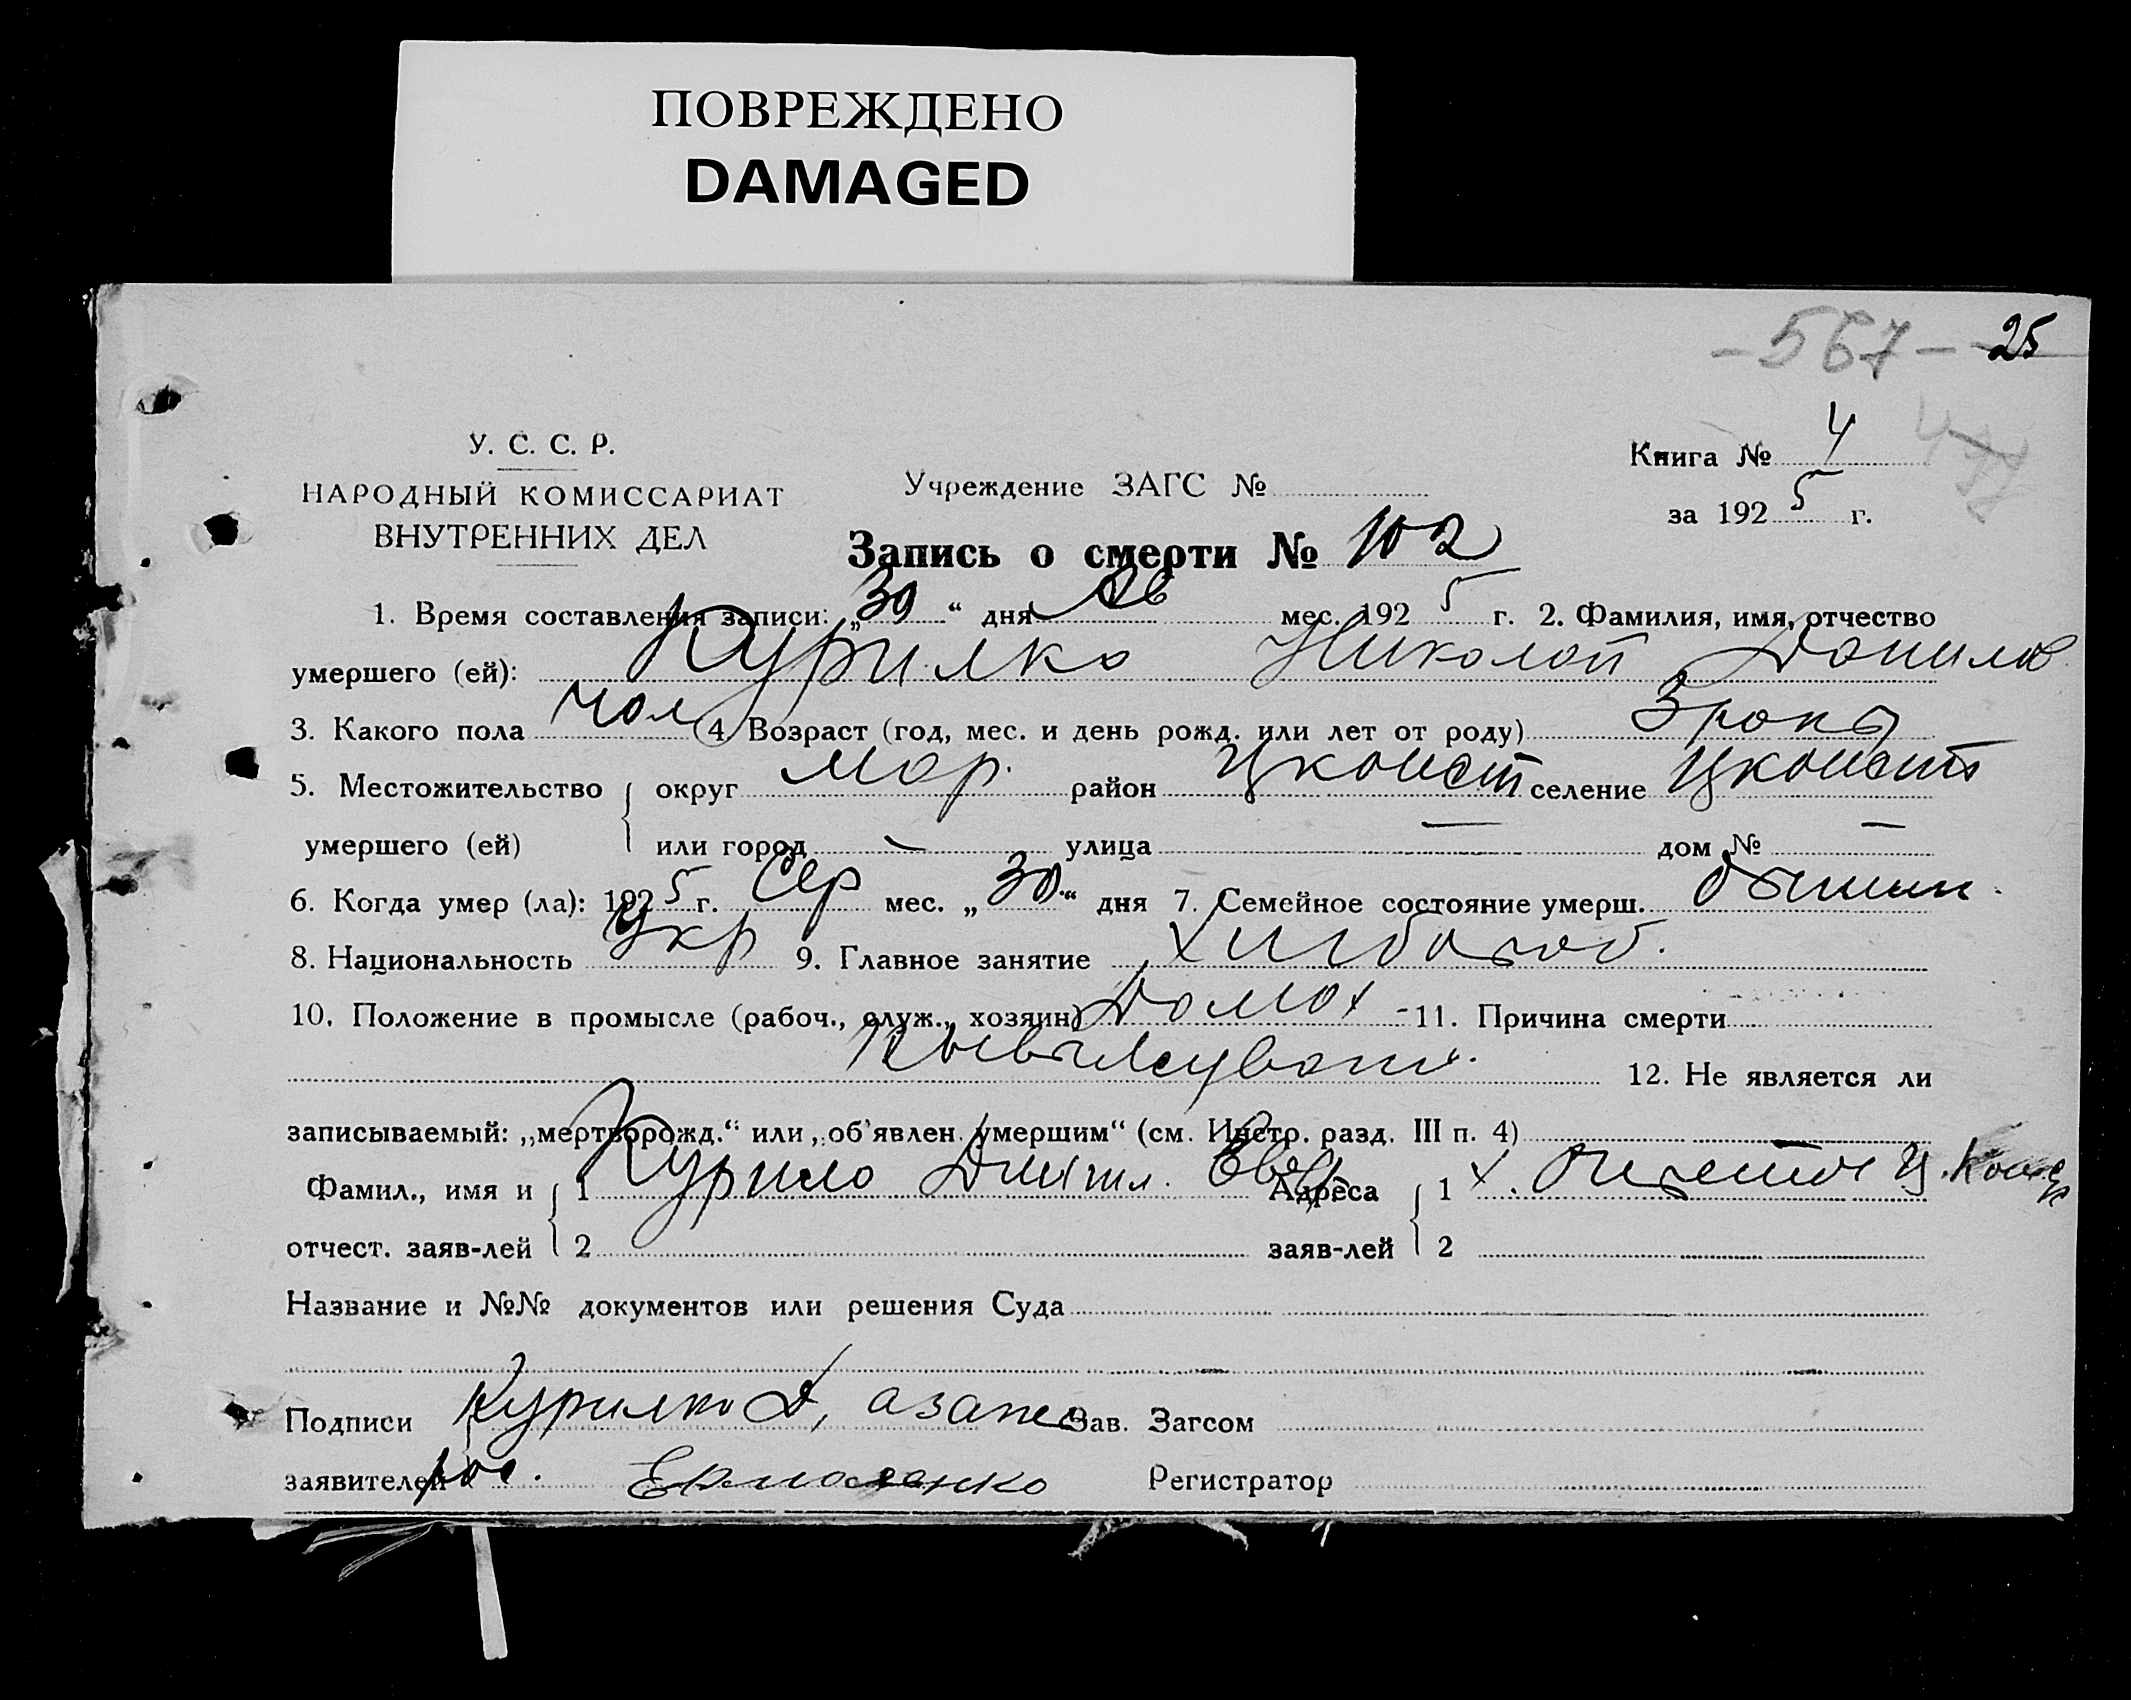 ПОВРЕЖДЕНО
DAMAGED
-567- 25
У. С. С. Р.
НАРОДНЫЙ КОМИССАРИАТ
ВНУТРЕННИХ ДЕЛ
Учреждение ЗАГС №
Книга № 4
за 1925 г.
Запись о смерти № 102
1. Время составления записи: „30“ дня мес. 1925 г. 2. Фамилия, имя, отчество
умершего (ей): Курилко Николай Данилов
3. Какого пола чол 4. Возраст (год, мес. и день рожд. или лет от роду) 3 роки
5. Местожительство округ Мар. район Цконст селение Цконст
умершего (ей) или город — улица — дом № —
6. Когда умер (ла): 1925 г. Сер мес. „30“ дня 7. Семейное состояние умерш.
8. Национальность Укр 9. Главное занятие Хлибороб.
10. Положение в промысле (рабоч., служ., хозяин) Домох - 11. Причина смерти
12. Не является ли
записываемый: „мертворожд.“ или „об'явлен. умершим“ (см. Инстр. разд. III п. 4)
Фамил., имя и 1 Курилко Адреса 1 х.
отчест. заяв-лей 2 заяв-лей 2
Название и №№ документов или решения Суда
Подписи Курилко Д, а за не Зав. Загсом
заявителей рос. Ермоленко Регистратор